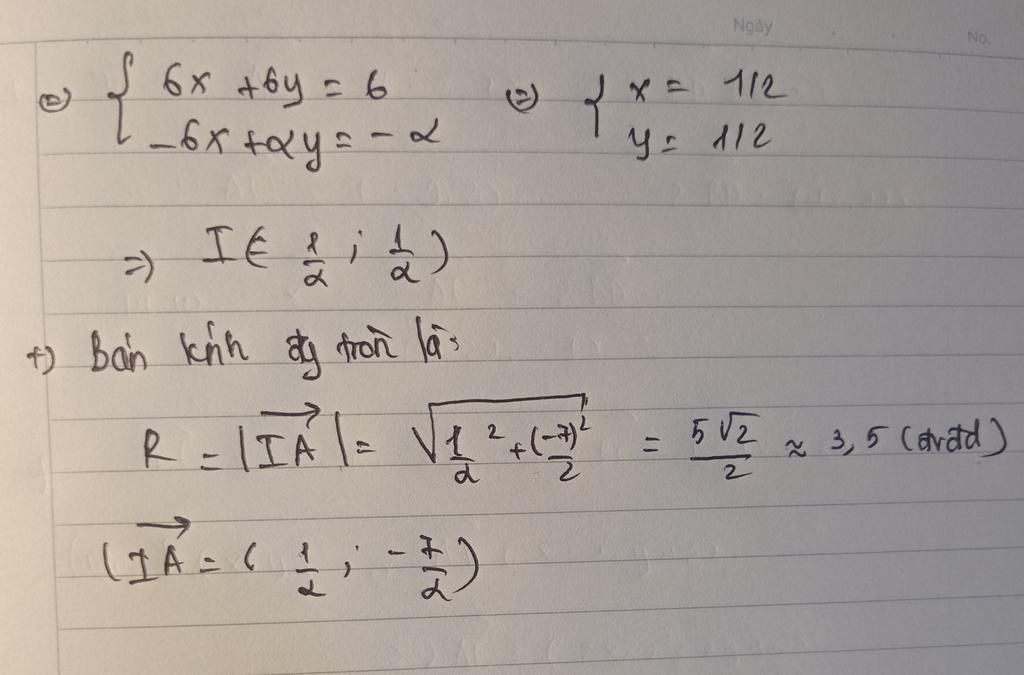 Ngày
No.
⇔ { 6x + 6y = 6 ⇔ { x = 1/2
-6x + 2y = -2 y = 1/2
⇒ I ( 1/2 ; 1/2 )
+) Bán kính đg tròn là:
R = |IA| = √(1/2 ² + (-7)/2 ²) = 5√2/2 ≈ 3,5 (đvđd)
(IA = ( 1/2 ; -7/2 )